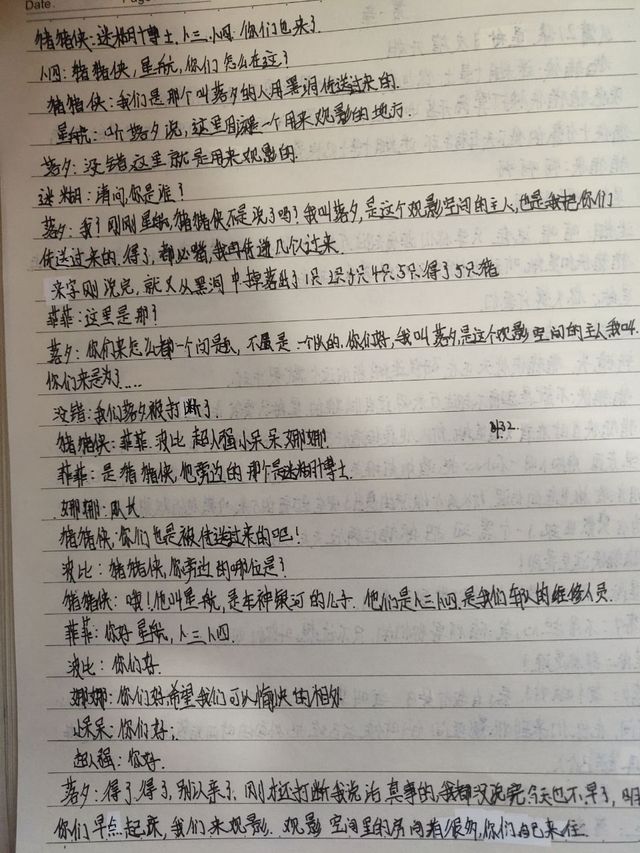 Date.
猪猪侠:迷糊博士,小三,小四.你们也来了.
小四:猪猪侠,星航,你们怎么在这?
猪猪侠:我们是那个叫落夕的人用黑洞传送过来的.
星航:听落夕说,这里是一个用来观影的地方.
落夕:没错这里就是用来观影的.
迷糊:请问,你是谁?
落夕:我?刚刚星航,猪猪侠不是说了吗?我叫落夕,是这个观影空间的主人,也是我把你们
传送过来的.得了,都必嘴,我再传进几位过来.
来字刚说完,就又从黑洞中掉落出了1只2只3只4只5只得了5只猪
菲菲:这里是那?
落夕:你们来怎么都一个问是,不愧是一个队的.你们好,我叫落夕,是这个观影空间的主人我叫.
你们来是为了....
没错:我们落夕被打断了.
猪猪侠:菲菲.波比 超人强小呆呆娜娜
菲菲:是猪猪侠,他旁边的那个是迷糊博士.
娜娜:队长
猪猪侠:你们也是被传送过来的吧!
波比:猪猪侠,你旁边的哪位是?
猪猪侠:哦!他叫星航,是车神银河的儿子.他们是小三小四.是我们车队的维修人员.
菲菲:你好星航,小三小四.
波比:你们好.
娜娜:你们好,希望我们可以愉快的相处
小呆呆:你们好;
超人强:你好.
落夕:得了得了,别认亲了.刚才还打断我说话 真事的,我都没说完,今天也不早了,明
你们早点起床,我们来观影.观影空间里的房间有很多,你们自己来住.